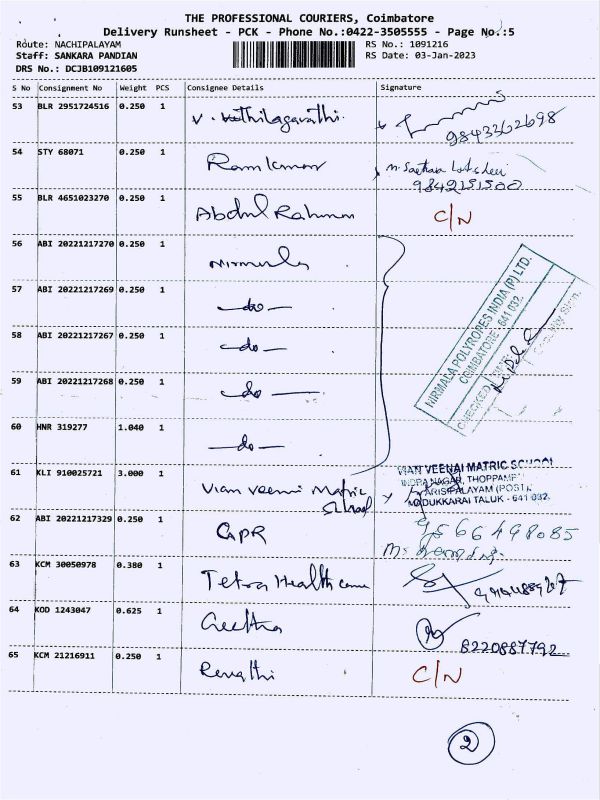 THE PROFESSIONAL COURIERS, Coimbatore
Delivery Runsheet - PCK - Phone No.:0422-3505555 - Page No.:5
Route: NACHIPALAYAM RS No.: 1091216
Staff: SANKARA PANDIAN RS Date: 03-Jan-2023
DRS No.: DCJB109121605
S No Consignment No Weight PCS Consignee Details Signature
53 BLR 2951724516 0.250 1 V. 9843362698
54 STY 68071 0.250 1 Ramkumar 9842151500
55 BLR 4651023270 0.250 1 Abdul Rahman C/N
56 ABI 20221217270 0.250 1 Nirmula
57 ABI 20221217269 0.250 1 —do—
58 ABI 20221217267 0.250 1 —do—
59 ABI 20221217268 0.250 1 —do—
60 HNR 319277 1.040 1 —do—
NIRMALA POLYROPES INDIA (P) LTD.
COIMBATORE - 641 032.
CHECKED
Security Sign.
61 KLI 910025721 3.000 1 Vian Veenai Matric School
VIAN VEENAI MATRIC SCHOOL
INDRA NAGAR, THOPPAMP
ARISIPALAYAM (POST),
MADUKKARAI TALUK - 641 032.
62 ABI 20221217329 0.250 1 GPR 9566498085
63 KCM 30050978 0.380 1 Tetra Health care
64 KOD 1243047 0.625 1 Geetha 8220887792
65 KCM 21216911 0.250 1 Revathi C/N
2